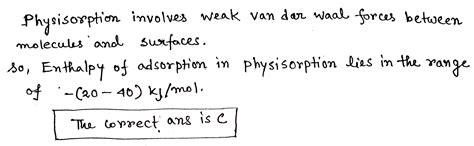 Physisorption involves weak van dar waal forces between
molecules and surfaces.
So, Enthalpy of adsorption in physisorption lies in the range
of -(20-40) kj/mol.
The correct ans is C